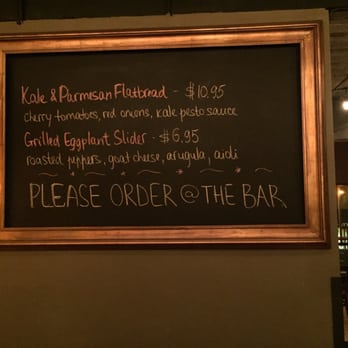 Kale & Parmesan Flatbread - $10.95
cherry tomatoes, red onions, kale pesto sauce
Grilled Eggplant Slider - $6.95
roasted peppers, goat cheese, arugula, aioli
PLEASE ORDER @ THE BAR